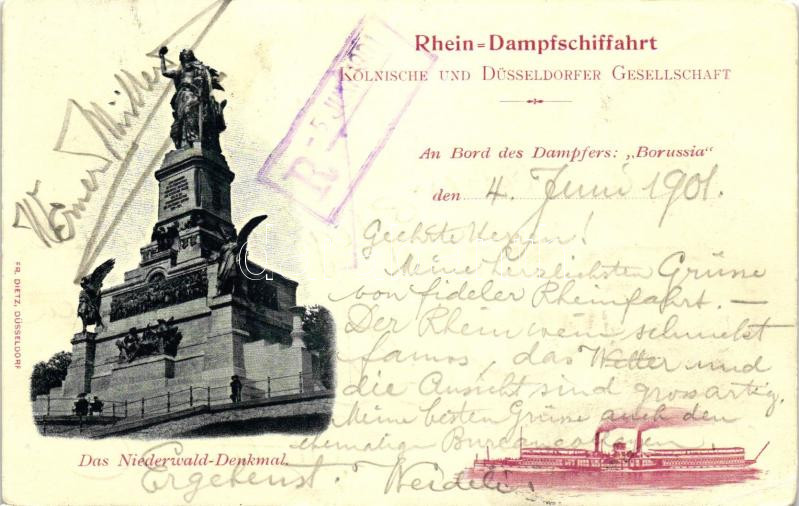 Rhein=Dampfschiffahrt
Kölnische und Düsseldorfer Gesellschaft
An Bord des Dampfers: „Borussia“
den 4. Juni 1901.
Geehrte Herren!
Meine herzlichsten Grüsse
von fideler Rheinfahrt. —
Der Rheinwein schmeckt
famos, das Wetter und
die Aussicht sind grossartig.
Meine besten Grüsse auch den
ehemaligen
Ergebenst.
Werner Müller
R
Das Niederwald-Denkmal.
FR. DIETZ, DÜSSELDORF